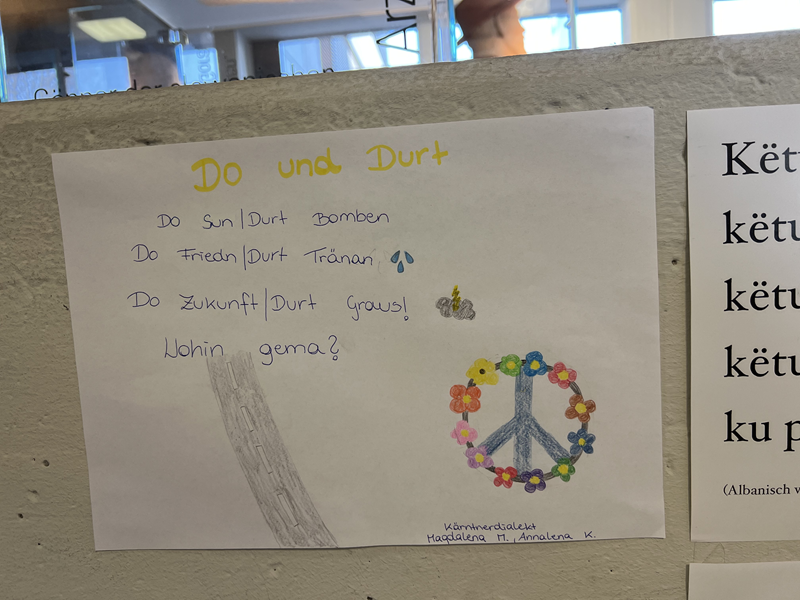 Do und Durt
Do Sun|Durt Bomben
Do Friedn|Durt Tränan
Do Zukunft|Durt Graus!
Wohin gema?
Kärntnerdialekt
Magdalena M., Annalena K.
Kët
këtu
këtu
këtu
ku p
(Albanisch